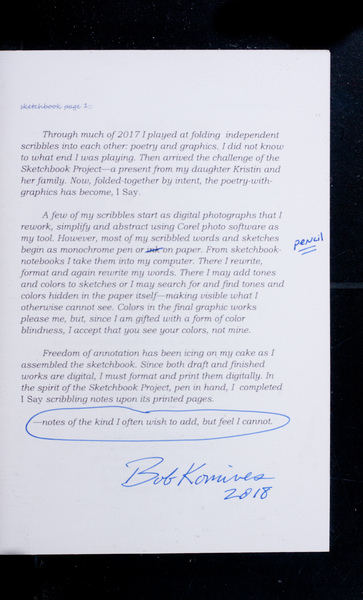 sketchbook page 1:
Through much of 2017 I played at folding independent
scribbles into each other: poetry and graphics. I did not know
to what end I was playing. Then arrived the challenge of the
Sketchbook Project—a present from my daughter Kristin and
her family. Now, folded-together by intent, the poetry-with-
graphics has become, I Say.
A few of my scribbles start as digital photographs that I
rework, simplify and abstract using Corel photo software as
my tool. However, most of my scribbled words and sketches
begin as monochrome pen or ink on paper. From sketchbook-
pencil
notebooks I take them into my computer. There I rewrite,
format and again rewrite my words. There I may add tones
and colors to sketches or I may search for and find tones and
colors hidden in the paper itself—making visible what I
otherwise cannot see. Colors in the final graphic works
please me, but, since I am gifted with a form of color
blindness, I accept that you see your colors, not mine.
Freedom of annotation has been icing on my cake as I
assembled the sketchbook. Since both draft and finished
works are digital, I must format and print them digitally. In
the spirit of the Sketchbook Project, pen in hand, I completed
I Say scribbling notes upon its printed pages.
—notes of the kind I often wish to add, but feel I cannot.
Bob Komives
2018